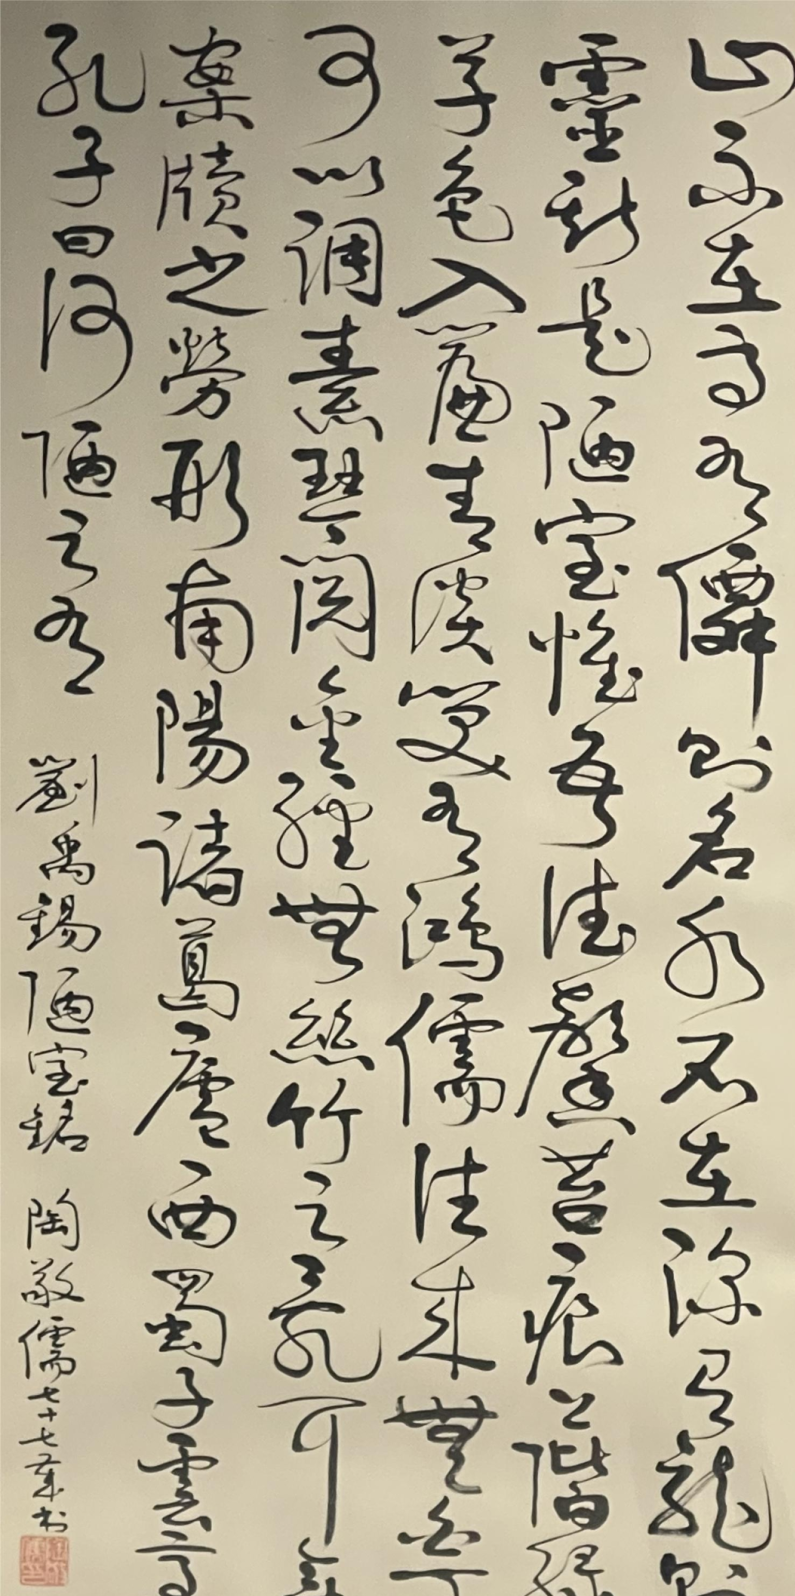 山不在高有僊則名水不在深有龍則
靈斯是陋室惟吾德馨苔痕上階綠
草色入簾青談笑有鴻儒往來無白丁
可以調素琴閱金經無絲竹之亂耳無
案牘之勞形南陽諸葛廬西蜀子雲亭
孔子曰何陋之有 劉禹錫陋室銘 陶敬儒七十七歲书